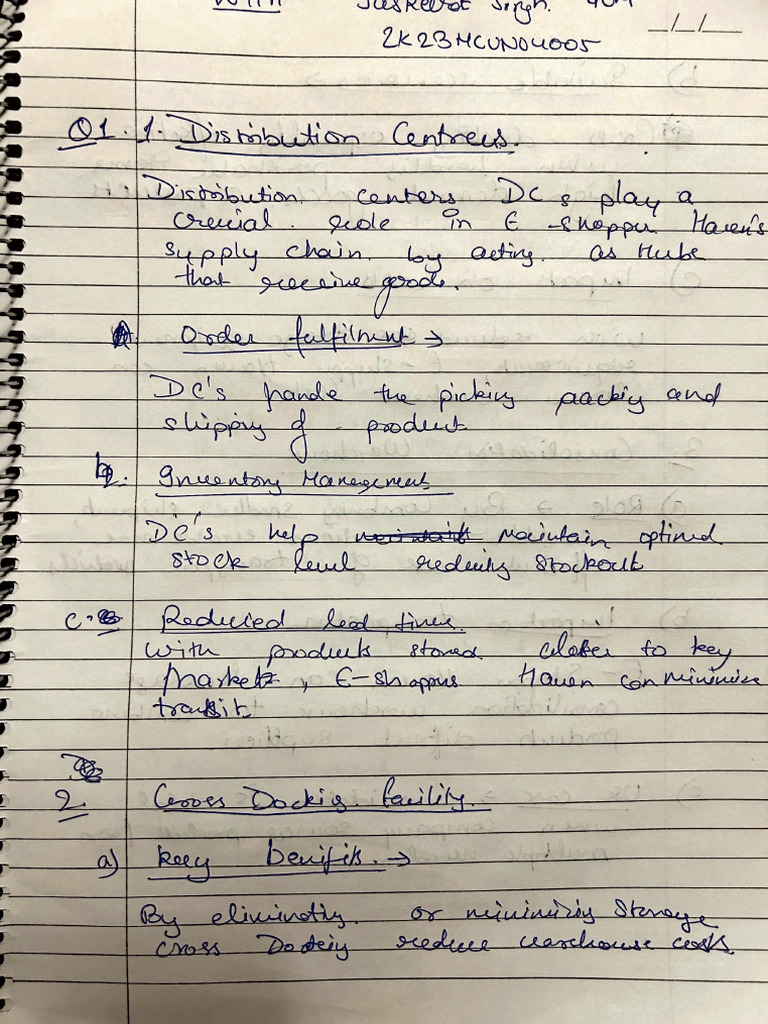 With Jaskeerat Singh.
2K23MCUN04005
__/__/__
Q1. 1. Distribution Centres.
Distribution centers DCs play a
crucial role in E-shopper Haven's
supply chain. by acting. as Hubs
that receive goods.
a Order fulfilment →
DC's handle the picking packing and
shipping of product
b. Inventory Management
DC's help maintain optimal
stock level reducing stockout
c. Reduced lead times.
With products stored closer to key
Markets, E-shoppers Haven can minimize
transit.
2. Cross Docking facility.
a) key benifits. →
By eliminating. or minimizing Storage
cross Docking reduce warehouse costs.